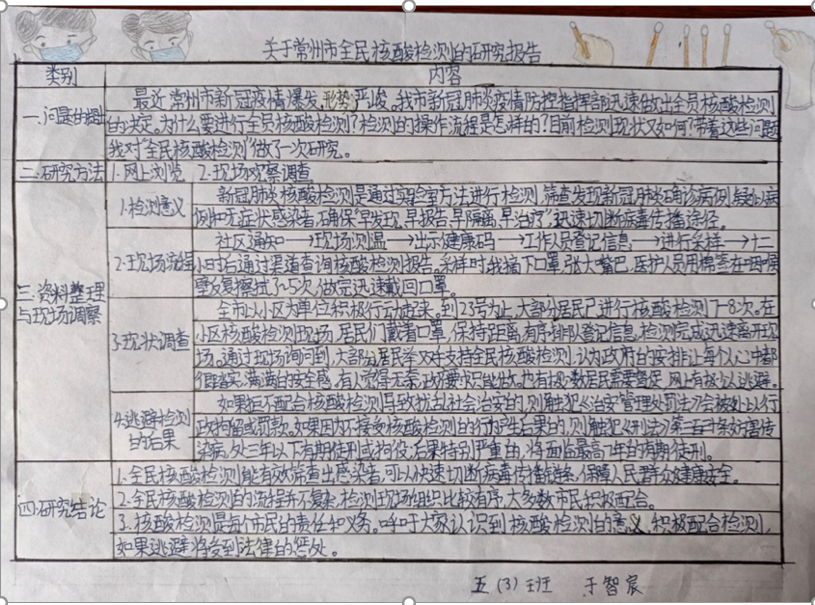 关于常州市全民核酸检测的研究报告
类别 内容
一.问题的提出
最近常州市新冠疫情爆发,形势严峻。我市新冠肺炎疫情防控指挥部迅速做出全员核酸检测
的决定。为什么要进行全员核酸检测?检测的操作流程是怎样的?目前检测现状又如何?带着这些问题
我对“全民核酸检测”做了一次研究。
二.研究方法 1.网上浏览 2.现场观察调查
三.资料整理
与现场调察
1.检测意义
新冠肺炎核酸检测是通过实验室方法进行检测,筛查发现新冠肺炎确诊病例,疑似病
例和无症状感染者,确保“早发现,早报告,早隔离,早治疗”迅速切断病毒传播途径。
2.现场流程
社区通知→现场测温→出示健康码→工作人员登记信息→进行采样→十二
小时后通过渠道查询核酸检测报告。采样时我摘下口罩,张大嘴巴,医护人员用棉签在咽喉
壁反复擦拭了4~5次,做完迅速戴回口罩。
3.现状调查
全市以小区为单位积极行动起来。到23号为止,大部分居民已进行核酸检测7-8次。在
小区核酸检测现场,居民们戴着口罩,保持距离,有序排队登记信息,检测完成迅速离开现
场。通过现场询问到,大部分居民举双手支持全民核酸检测,认为政府的安排让每个人心中都
有踏实,满满的安全感。有人觉得无奈,政府要求只能做,也有极少数居民需要督促,网上有极少人逃避。
4.逃避检测
的后果
如果拒不配合核酸检测导致扰乱社会治安的,则触犯《治安管理处罚法》会被处以行
政拘留或罚款。如果因为不接受核酸检测的行为产生后果的,则触犯《刑法》第三百三十条妨害传
染病,处三年以下有期徒刑或拘役,后果特别严重的,将面临最高7年的有期徒刑。
四.研究结论
1.全民核酸检测能有效筛查出感染者,可以快速切断病毒传播链条,保障人民群众健康安全。
2.全民核酸检测的流程并不复杂,检测现场组织比较有序,大多数市民积极配合。
3.核酸检测是每个市民的责任和义务。呼吁大家认识到核酸检测的意义,积极配合检测,
如果逃避将受到法律的惩处。
五(3)班 于智宸